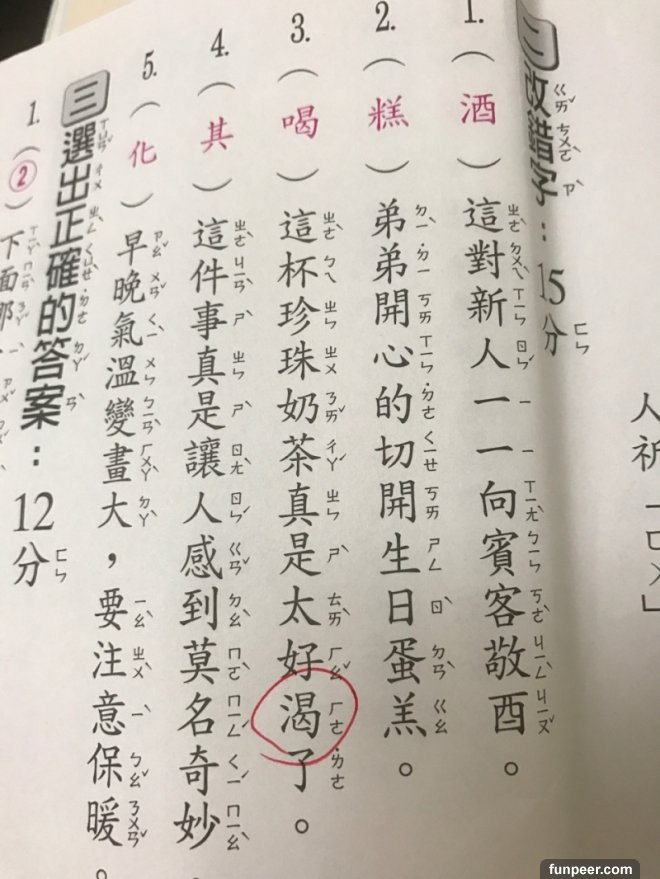 二 改錯字：15分
1.（酒）這對新人一一向賓客敬酉。
2.（糕）弟弟開心的切開生日蛋羔。
3.（喝）這杯珍珠奶茶真是太好渴了。
4.（其）這件事真是讓人感到莫名奇妙。
5.（化）早晚氣溫變畫大，要注意保暖。
三 選出正確的答案：12分
1.（②）下面那
人祈
funpeer.com